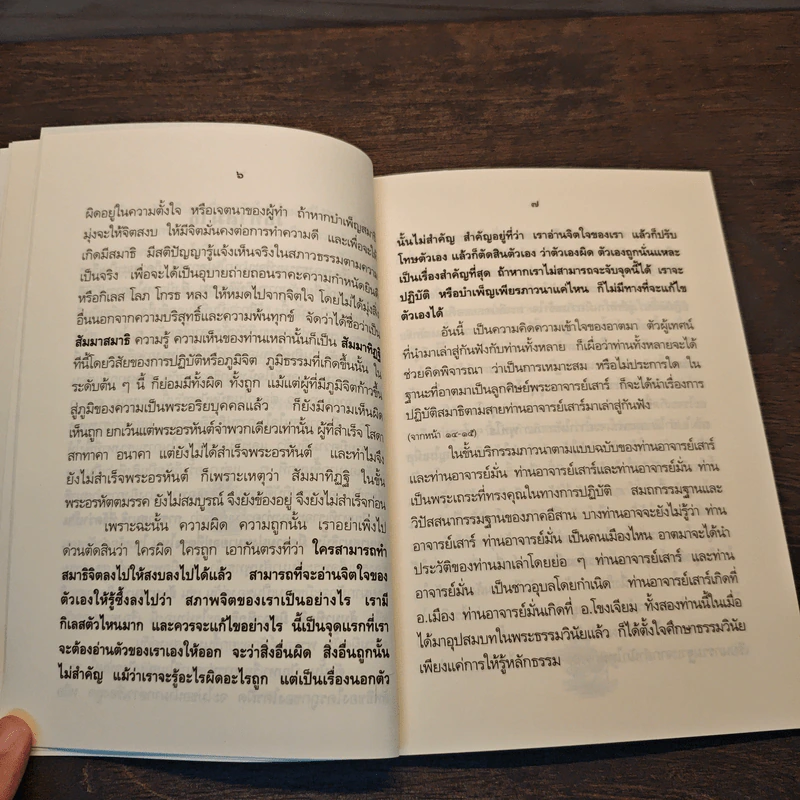 ๖
ผิดอยู่ในความตั้งใจ หรือเจตนาของผู้ทำ ถ้าหากบำเพ็ญสมาธิ
มุ่งจะให้จิตสงบ ให้มีจิตมั่นคงต่อการทำความดี และเพื่อจะให้
เกิดมีสมาธิ มีสติปัญญารู้แจ้งเห็นจริงในสภาวธรรมตามความ
เป็นจริง เพื่อจะได้เป็นอุบายถ่ายถอนราคะความกำหนัดยินดี
หรือกิเลส โลภ โกรธ หลง ให้หมดไปจากจิตใจ โดยไม่ได้มุ่งสิ่ง
อื่นนอกจากความบริสุทธิ์และความพ้นทุกข์ จัดว่าได้ชื่อว่าเป็น
สัมมาสมาธิ ความรู้ ความเห็นของท่านเหล่านั้นก็เป็น สัมมาทิฏฐิ
ทีนี้โดยวิสัยของการปฏิบัติหรือภูมิจิต ภูมิธรรมที่เกิดขึ้นนั้น ใน
ระดับต้น ๆ นี้ ก็ย่อมมีทั้งผิด ทั้งถูก แม้แต่ผู้ที่มีภูมิจิตก้าวขึ้น
สู่ภูมิของความเป็นพระอริยบุคคลแล้ว ก็ยังมีความเห็นผิด
เห็นถูก ยกเว้นแต่พระอรหันต์จำพวกเดียวเท่านั้น ผู้ที่สำเร็จ โสดา
สกทาคา อนาคา แต่ยังไม่ได้สำเร็จพระอรหันต์ และทำไมจึง
ยังไม่สำเร็จพระอรหันต์ ก็เพราะเหตุว่า สัมมาทิฏฐิ ในขั้น
พระอรหัตตมรรค ยังไม่สมบูรณ์ จึงยังข้องอยู่ จึงยังไม่สำเร็จก่อน
เพราะฉะนั้น ความผิด ความถูกนั้น เราอย่าเพิ่งไป
ด่วนตัดสินว่า ใครผิด ใครถูก เอากันตรงที่ว่า ใครสามารถทำ
สมาธิจิตลงไปให้สงบลงไปได้แล้ว สามารถที่จะอ่านจิตใจของ
ตัวเองให้รู้ซึ้งลงไปว่า สภาพจิตของเราเป็นอย่างไร เรามี
กิเลสตัวไหนมาก และควรจะแก้ไขอย่างไร นี้เป็นจุดแรกที่เรา
จะต้องอ่านตัวของเราเองให้ออก จะว่าสิ่งอื่นผิด สิ่งอื่นถูกนั้น
ไม่สำคัญ แม้ว่าเราจะรู้อะไรผิดอะไรถูก แต่เป็นเรื่องนอกตัว
๗
นั้นไม่สำคัญ สำคัญอยู่ที่ว่า เราอ่านจิตใจของเรา แล้วก็ปรับ
โทษตัวเอง แล้วก็ตัดสินตัวเอง ว่าตัวเองผิด ตัวเองถูกนั่นแหละ
เป็นเรื่องสำคัญที่สุด ถ้าหากเราไม่สามารถจะจับจุดนี้ได้ เราจะ
ปฏิบัติ หรือบำเพ็ญเพียรภาวนาแค่ไหน ก็ไม่มีทางที่จะแก้ไข
ตัวเองได้
อันนี้ เป็นความคิดความเข้าใจของอาตมา ตัวผู้เทศน์
ที่นำมาเล่าสู่กันฟังกับท่านทั้งหลาย ก็เผื่อว่าท่านทั้งหลายจะได้
ช่วยคิดพิจารณา ว่าเป็นการเหมาะสม หรือไม่ประการใด ใน
ฐานะที่อาตมาเป็นลูกศิษย์พระอาจารย์เสาร์ ก็จะได้นำเรื่องการ
ปฏิบัติสมาธิตามสายท่านอาจารย์เสาร์มาเล่าสู่กันฟัง
(จากหน้า ๑๔-๑๕)
ในขั้นบริกรรมภาวนาตามแบบฉบับของท่านอาจารย์เสาร์
และท่านอาจารย์มั่น ท่านอาจารย์เสาร์และท่านอาจารย์มั่น ท่าน
เป็นพระเถระที่ทรงคุณในทางการปฏิบัติ สมถกรรมฐานและ
วิปัสสนากรรมฐานของภาคอีสาน บางท่านอาจจะยังไม่รู้ว่า ท่าน
อาจารย์เสาร์ ท่านอาจารย์มั่น เป็นคนเมืองไหน อาตมาจะได้นำ
ประวัติของท่านมาเล่าโดยย่อ ๆ ท่านอาจารย์เสาร์ และท่าน
อาจารย์มั่น เป็นชาวอุบลโดยกำเนิด ท่านอาจารย์เสาร์เกิดที่
อ.เมือง ท่านอาจารย์มั่นเกิดที่ อ.โขงเจียม ทั้งสองท่านนี้ในเมื่อ
ได้มาอุปสมบทในพระธรรมวินัยแล้ว ก็ได้ตั้งใจศึกษาธรรมวินัย
เพียงแค่การให้รู้หลักธรรม